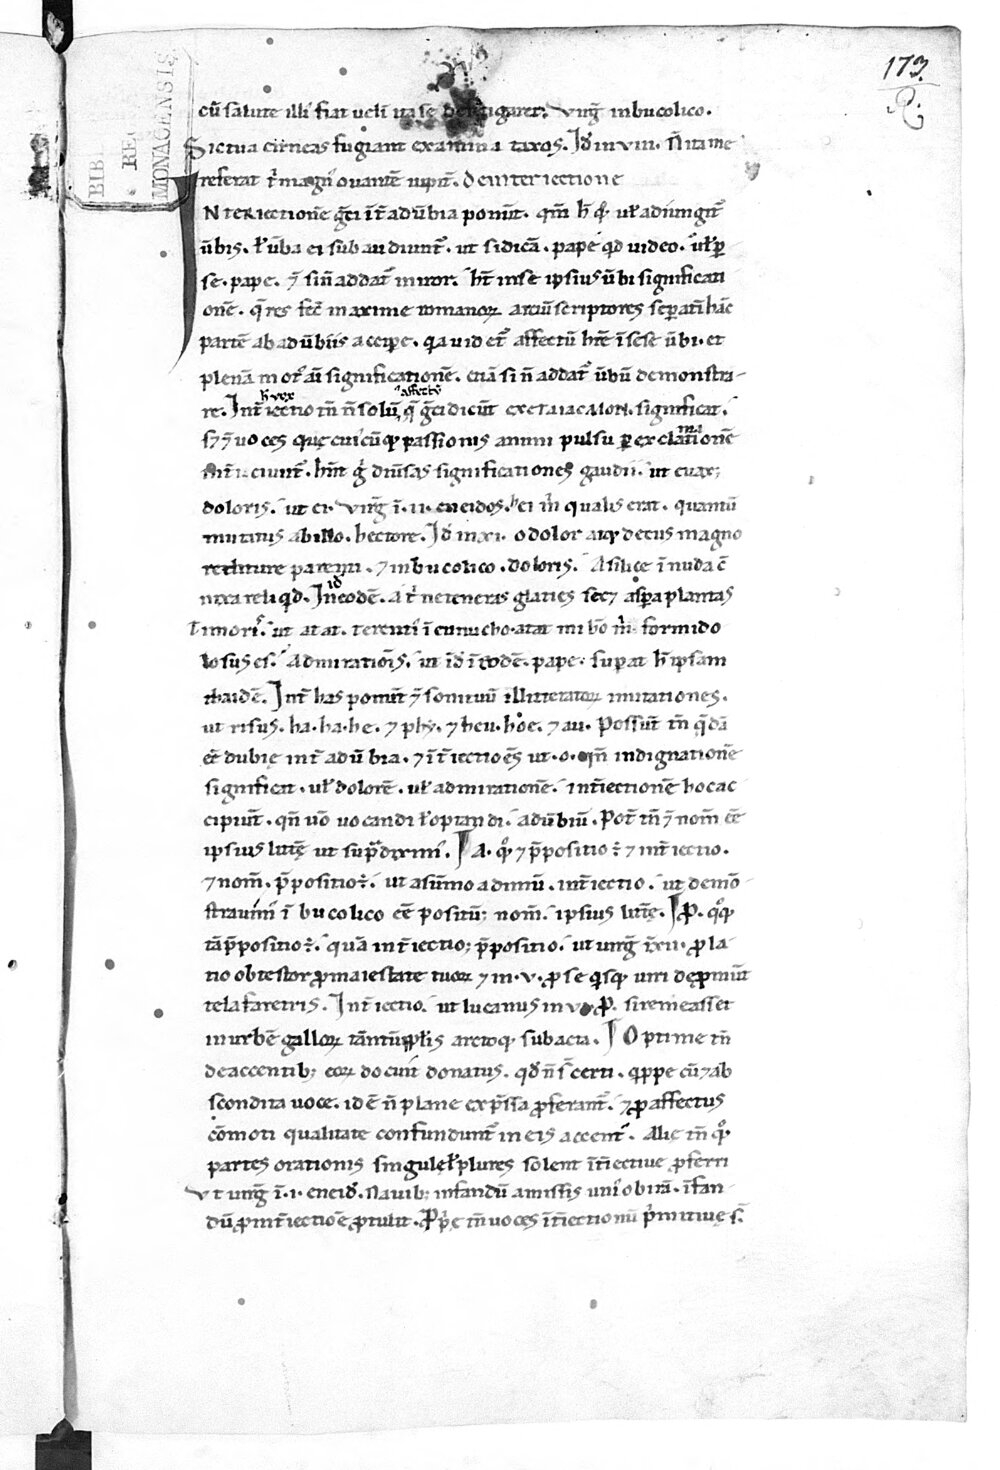 173.
BIB
RE
MONACENSIS
cū salute illi fiat ueli ita se de garet. Virg̃ in bucolico.
Sic tua cirneas fugiant examina taxos. Id in viii. N ita me
referat t̃ magn̄ ouantē iupit̃. de interiectione
INteriectionē g̃ci īt̃ aduerbia ponūt. qm̄ h̃ ł adiungit̃
ūbis. ł ūba ei subaudiunt̃. ut si dicā. pape qd uideo. uł p̲
se. pape. ⁊ si n̄ addat̃ miror. ht̃ in se ipsius ūbi significati
onē. q̄ res fec̄ maxime romanoꝝ artiū scriptores sep̲atī hāc
partē ab adūbiis accipe. q̄a uidet̃ affectū hr̄e ī sese ūbi. et
plenā mot̃ aī significationē. etiā si n̄ addat̃ ūbū demonstra-
re. Int̃iectio tn̄ n̄ solū, q̄ g̃ci dicūt significat.
h̃ uox
affectū
s; ⁊ uoces quę cuicūq; passionis animi pulsu p̲ exclamationē
int̃iciunt̃. hn̄t g̃ diūsas significationes gaudii. ut euax;
doloris. ut ei. Virg̃ ī. ii. eneidos. hei m̃ qualis erat. quantū
mutatus ab illo. hectore. Id in xi. o dolor atq; decus magnū
rediture parenti. ⁊ in bucolico. doloris. A silice ī nuda c̄
nixa reliqd. In eodē. A t̃ ne teneras glacies sec; asp̲a plantas
id
Timoris. ut atat. terenti ī eunucho. atat mi hō m̃. formido
losus es. Admirationis. ut īd ī eodē. pape. superat h̃ ipsam
thaidē. Int̃ has ponūt ⁊ sonituū illitteratoꝝ imitationes.
ut risus. ha. ha. he. ⁊ phy. ⁊ heu. hoe. ⁊ au. Possūt tn̄ q̄dā
eē dubię int̃ adūbia. ⁊ īt̃iectiōes ut. o. qn̄ indignationē
significat. uł dolorē. uł admirationē. int̃iectionē hoc ac
cipiūt. qn̄ uō uocandi ł optandi. adūbiū. Pot̃ tn̄ ⁊ nom̄ eē
ipsius litt̃ę ut sup̃ diximꝰ. A. q̊q; ⁊ p̄positio ⁊ int̃iectio.
⁊ nom̄. p̄positio. ut a sūmo ad imū. int̃iectio. ut demō-
strauimꝰ ī bucolico eē positū; nom̄. ipsius litt̃ę. P. q̊q;
tā p̄positio. quā int̃iectio; p̄positio. ut uirg̃ ī xii. p̲ la
tio obtestor p̲ maiestate tuoꝝ ⁊ in. v. p̲ se q̃sq; uiri dep̲munt
tela faretris. Int̃iectio. ut lucanus in v. P. si remeasset
in urbē galloꝝ tantū p̄lis arctoq; subacta. Optime tn̄
de accentib; eoꝝ docuit donatus. qd n̄ s̃ certi. q̃ppe cū ⁊ ab
scondita uoce. id ē n̄ plane exp̃ssa p̲ferant̃. ⁊ p̲ affectus
cōmoti qualitate confundunt̃ in eis accentꝰ. Alię tn̄ q̊q;
partes orationis singulę ł plures solent īt̃iectiue p̲ferri
Vt uirg̃ ī. i. eneid. Nauib; infandū amissis uniꝰ ob irā. īfan-
dū p̲ int̃iectiōe p̲tulit. P̲p̃ę tn̄ uoces īt̃iectionū p̃mitiuę s̃.